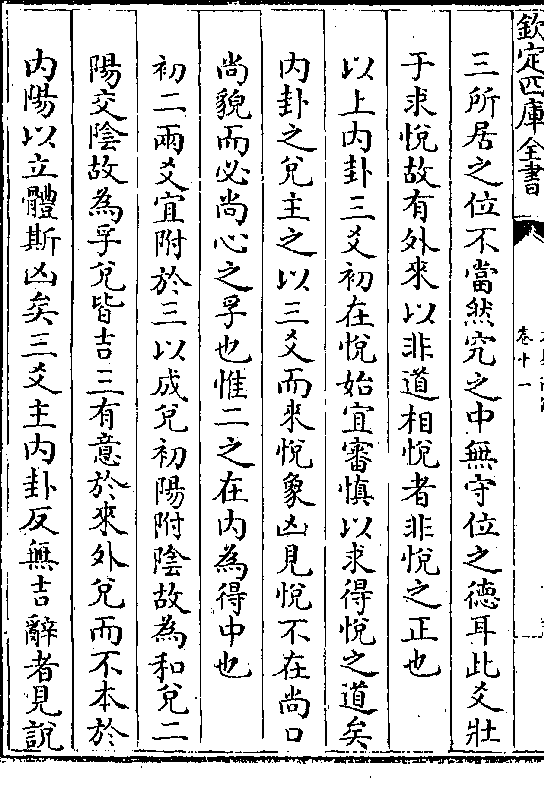 欽定四庫全書
卷十一
三所居之位不當然究之中無守位之德耳此爻壯
于求悅故有外來以非道相悅者非悅之正也
以上內卦三爻初在悅始宜審慎以求得悅之道矣
內卦之兌主之以三爻而來悅象凶見悅不在尚口
尚貌而必尚心之孚也惟二之在內為得中也
初二兩爻宜附於三以成兌初陽附陰故為和兌二
陽交陰故為孚兌皆吉三有意於來外兌而不本於
內陽以立體斯凶矣三爻主內卦反無吉辭者見說